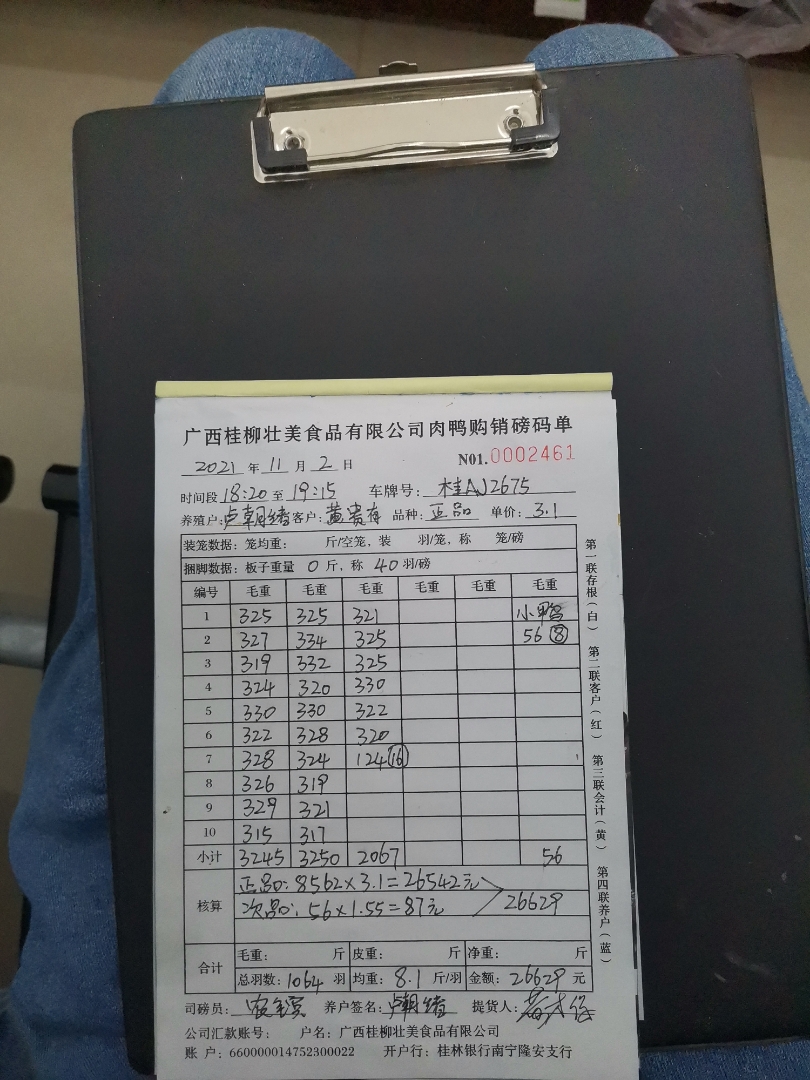 广西桂柳壮美食品有限公司肉鸭购销磅码单
2021 年 11 月 2 日 N01.0002461
时间段 18:20 至 19:15 车牌号: 桂AJ2675
养殖户: 卢朝绪 客户: 黄贵有 品种: 正品 单价: 3.1
装笼数据: 笼均重: 斤/空笼, 装 羽/笼, 称 笼/磅
捆脚数据: 板子重量 0 斤, 称 40 羽/磅
编号 毛重 毛重 毛重 毛重 毛重 毛重
1 325 325 321 小鸭
2 327 334 325 56 8
3 319 332 325
4 324 320 330
5 330 330 322
6 322 328 320
7 328 324 124 16
8 326 319
9 329 321
10 315 317
小计 3245 3250 2067 56
核算 正品: 8562×3.1=26542元
次品: 56×1.55=87元 26629
合计 毛重: 斤 皮重: 斤 净重: 斤
总羽数: 1064 羽 均重: 8.1 斤/羽 金额: 26629 元
司磅员: 养户签名: 卢朝绪 提货人:
公司汇款账号: 户名: 广西桂柳壮美食品有限公司
账 户: 660000014752300022 开户行: 桂林银行南宁隆安支行
第一联存根(白) 第二联客户(红) 第三联会计(黄) 第四联养户(蓝)